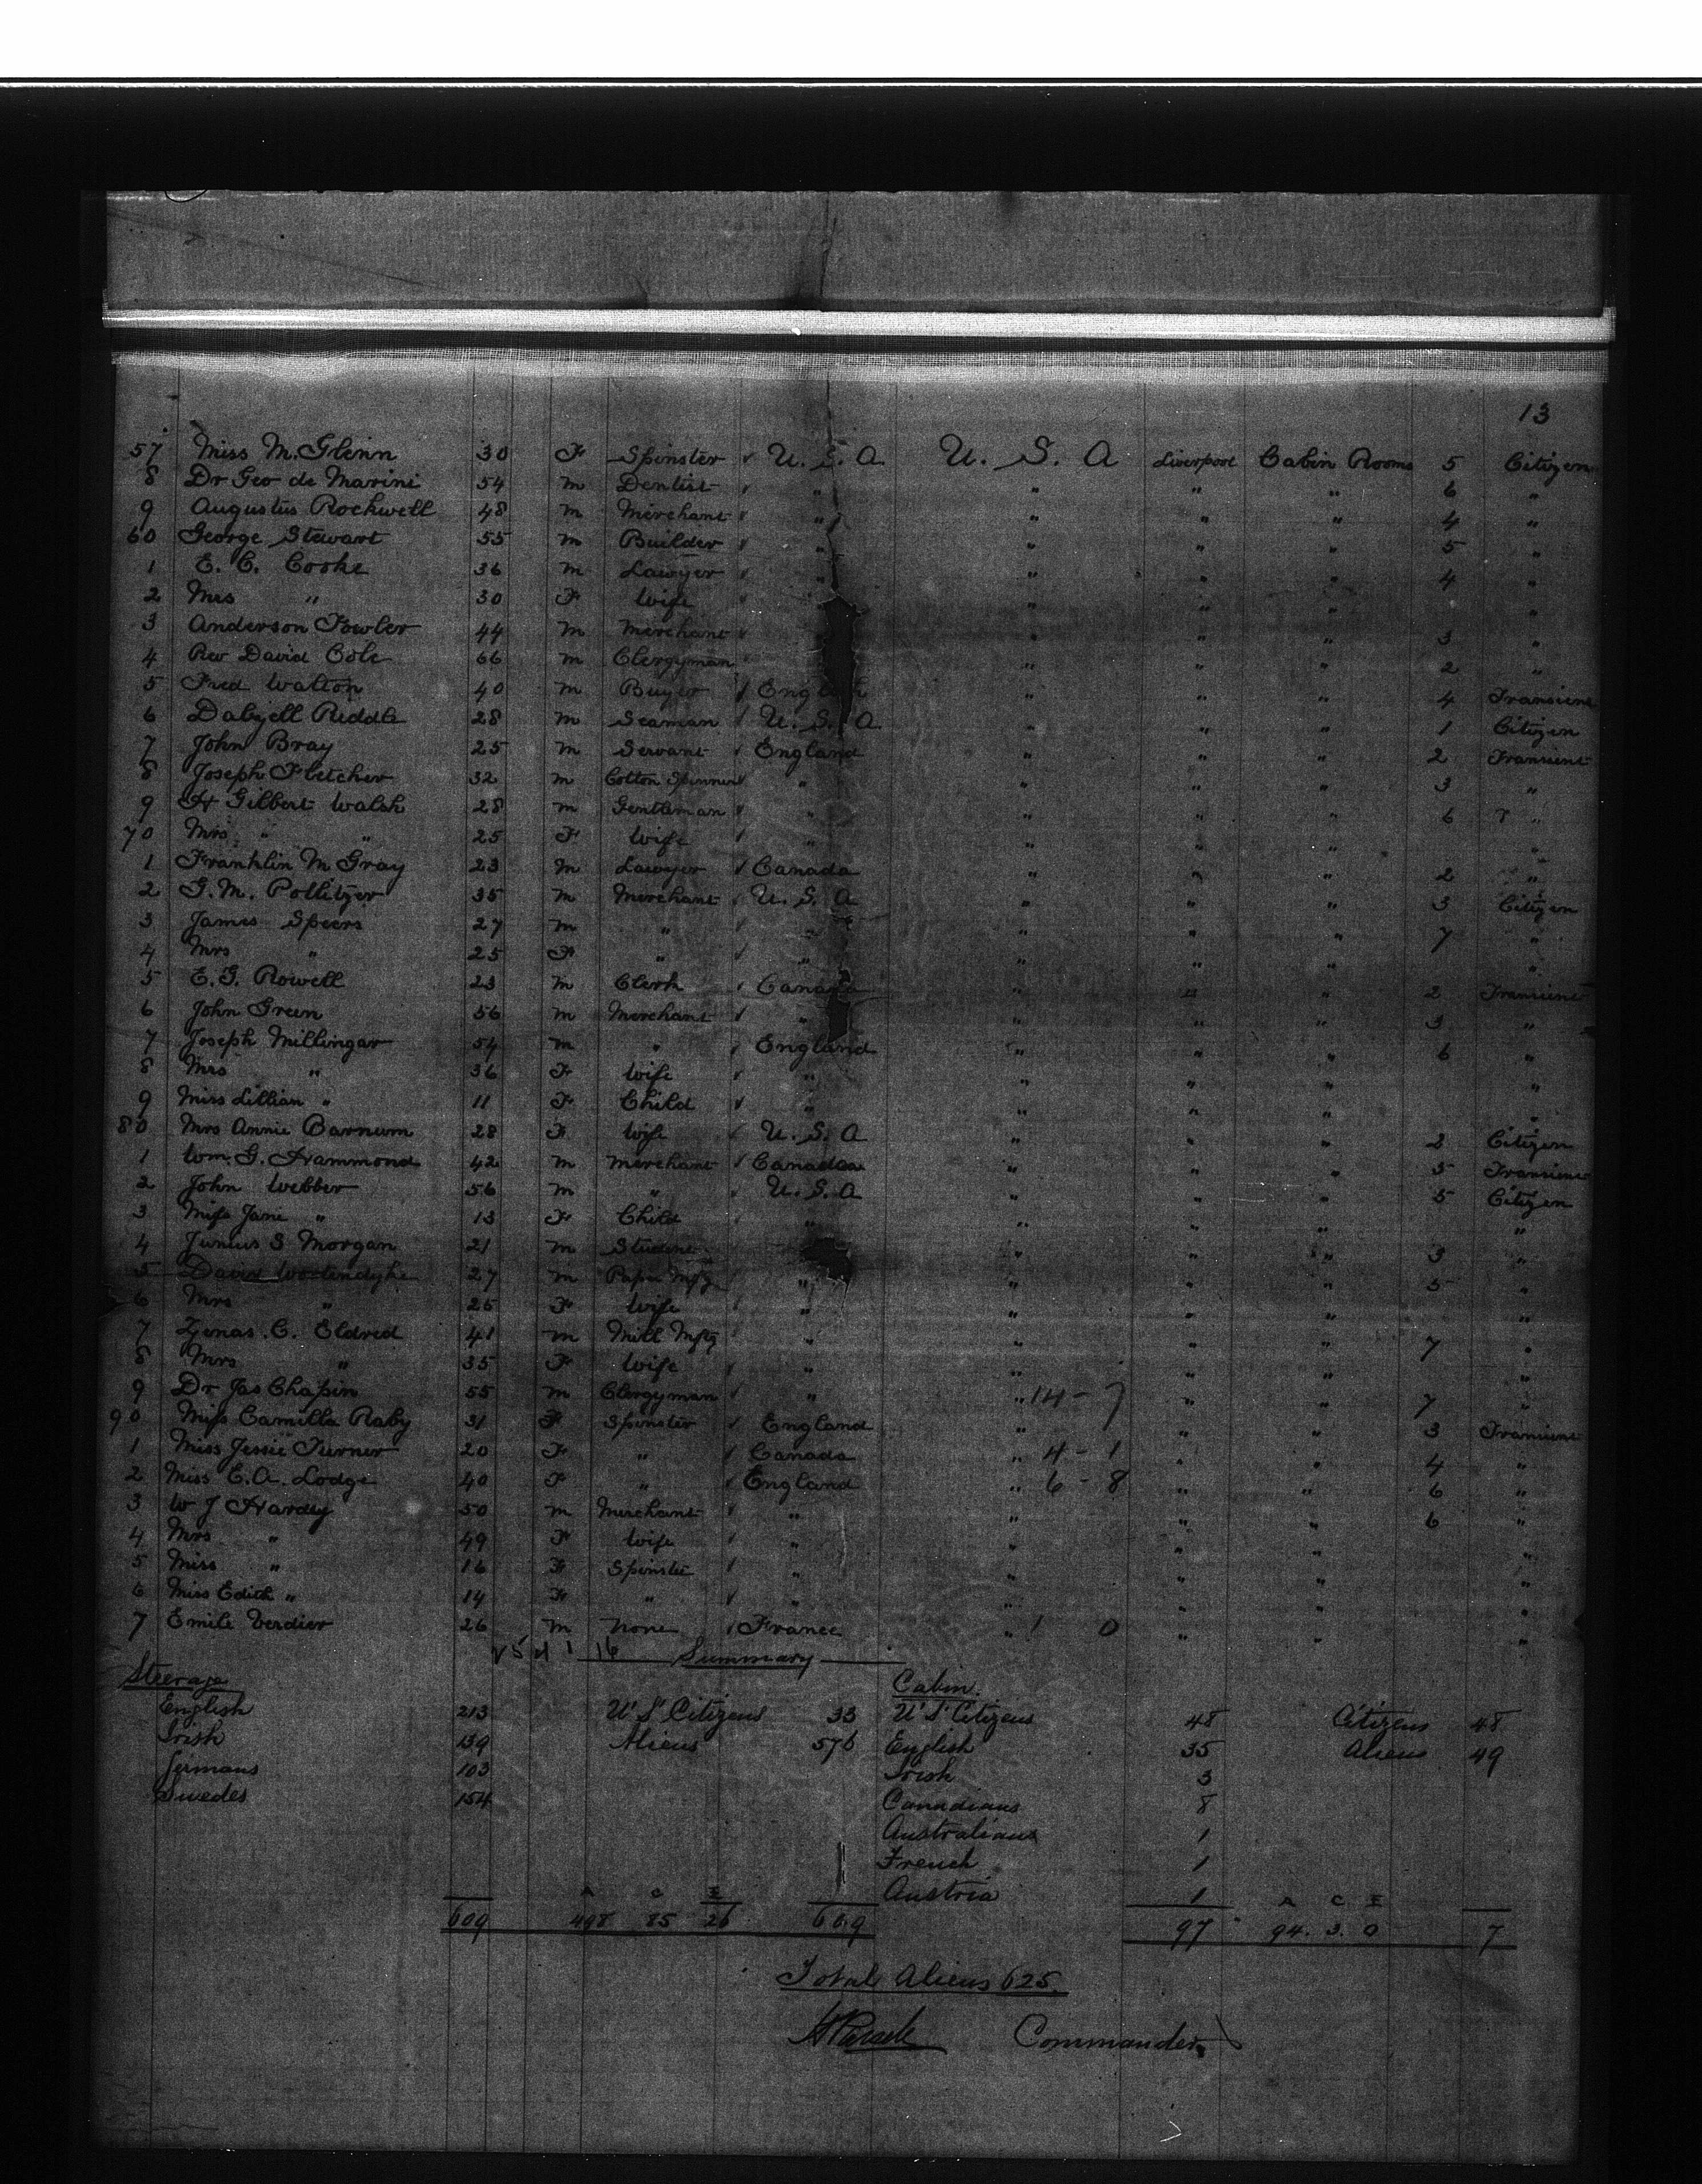 13
57 Miss M. Glenn 30 F Spinster U. S. A U. S. A Liverpool Cabin Rooms 5 Citizen
8 Dr Geo de Marini 54 m Dentist " " " " 6 "
9 Augustus Rockwell 48 m Merchant " " " " 4 "
60 George Stewart 55 m Builder " " " " 5 "
1 E. C. Cooke 36 m Lawyer " " " " 4 "
2 Mrs " 30 F Wife " " " "
3 Anderson Fowler 44 m Merchant " " " 3 "
4 Rev David Cole 66 m Clergyman " " " 2 "
5 Fred Walton 40 m Buyer England " " " 4 Transient
6 Dalzell Riddle 28 m Seaman U. S. A " " " 1 Citizen
7 John Bray 25 m Servant England " " " 2 Transient
8 Joseph Fletcher 32 m Cotton Spinner " " " " 3 "
9 H Gilbert Walsh 28 m Gentleman " " " " 6 "
70 Mrs " " 25 F Wife " " " " "
1 Franklin M Gray 23 m Lawyer Canada " " " 2 "
2 G. M. Pollitzer 35 m Merchant U. S. A " " " 3 Citizen
3 James Speers 27 m " " " " " 7 "
4 Mrs " 25 F " " " " " "
5 E. G. Rowell 23 m Clerk Canada " " " 2 Transient
6 John Green 56 m Merchant " " " " 3 "
7 Joseph Millingar 54 m " England " " " 6 "
8 Mrs " 36 F Wife " " " " "
9 Miss Lillian " 11 F Child " " " " "
80 Mrs Annie Barnum 28 F Wife U. S. A " " " 2 Citizen
1 Wm. G. Hammond 42 m Merchant Canada " " " 5 Transient
2 John Webber 56 m " U. S. A " " " 5 Citizen
3 Miss Jane " 13 F Child " " " " "
4 Junius S Morgan 21 m Student " " " 3 "
5 David Wortendyke 27 m Paper Mfg " " " " 5 "
6 Mrs " 25 F Wife " " " " "
7 Zenas. C. Eldred 41 m Mill Mfg " " " " 7 "
8 Mrs " 35 F Wife " " " "
9 Dr Jas Chapin 55 m Clergyman " " 14 - 7 " " 7 "
90 Miss Camilla Raby 31 F Spinster England " " " 3 Transient
1 Miss Jessie Turner 20 F " Canada " 4 - 1 " " 4 "
2 Miss E. A. Lodge 40 F " England " 6 - 8 " " 6 "
3 W J Hardy 50 m Merchant " " " " 6 "
4 Mrs " 49 F Wife " " " " "
5 Miss " 16 F Spinster " " " " "
6 Miss Edith " 14 F " " " " " "
7 Emile Verdier 26 m None France " 1 0 " "
Summary
Steerage Cabin.
English 213 U. S. Citizens 33 U. S. Citizens 48 Citizens 48
Irish 139 Aliens 576 English 35 Aliens 49
Germans 103 Irish 3
Swedes 154 Canadians 8
Australians 1
French 1
Austria 1
A C E A C E
609 498 85 26 609 97 94. 3. 0 7
Total Aliens 625.
Commander